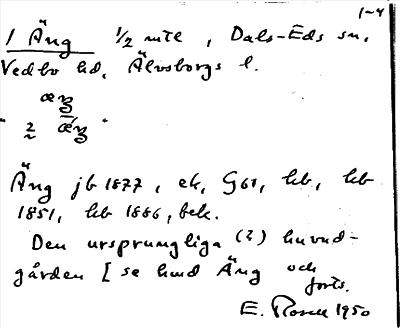 1-4
1 Äng 1/2 mtl, Dals-Eds sn,
Vedbo hd, Älvsborgs l.
æŋ
" 2 ǽŋ "
Äng jb 1877, ek, G61, hb, hb
1851, hb 1886, bek.
Den ursprungliga (?) huvud-
gården [ se hmd Äng och
forts.
E. Rosell 1950